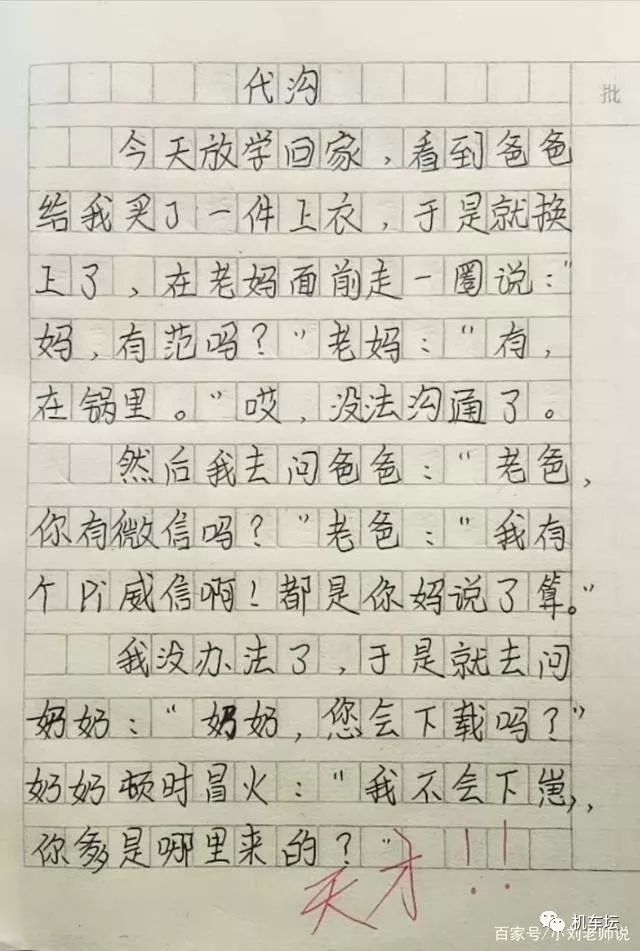 代沟
批
今天放学回家，看到爸爸
给我买了一件上衣，于是就换
上了，在老妈面前走一圈说：“
妈，有范吗？”老妈：“有，
在锅里。”哎，没法沟通了。
然后我去问爸爸：“老爸，
你有微信吗？”老爸：“我有
个Pi威信啊！都是你妈说了算。”
我没办法了，于是就去问
奶奶：“奶奶，您会下载吗？”
奶奶顿时冒火：“我不会下崽，
你爹是哪里来的？”
天才！！
机车坛
百家号/小刘老师说